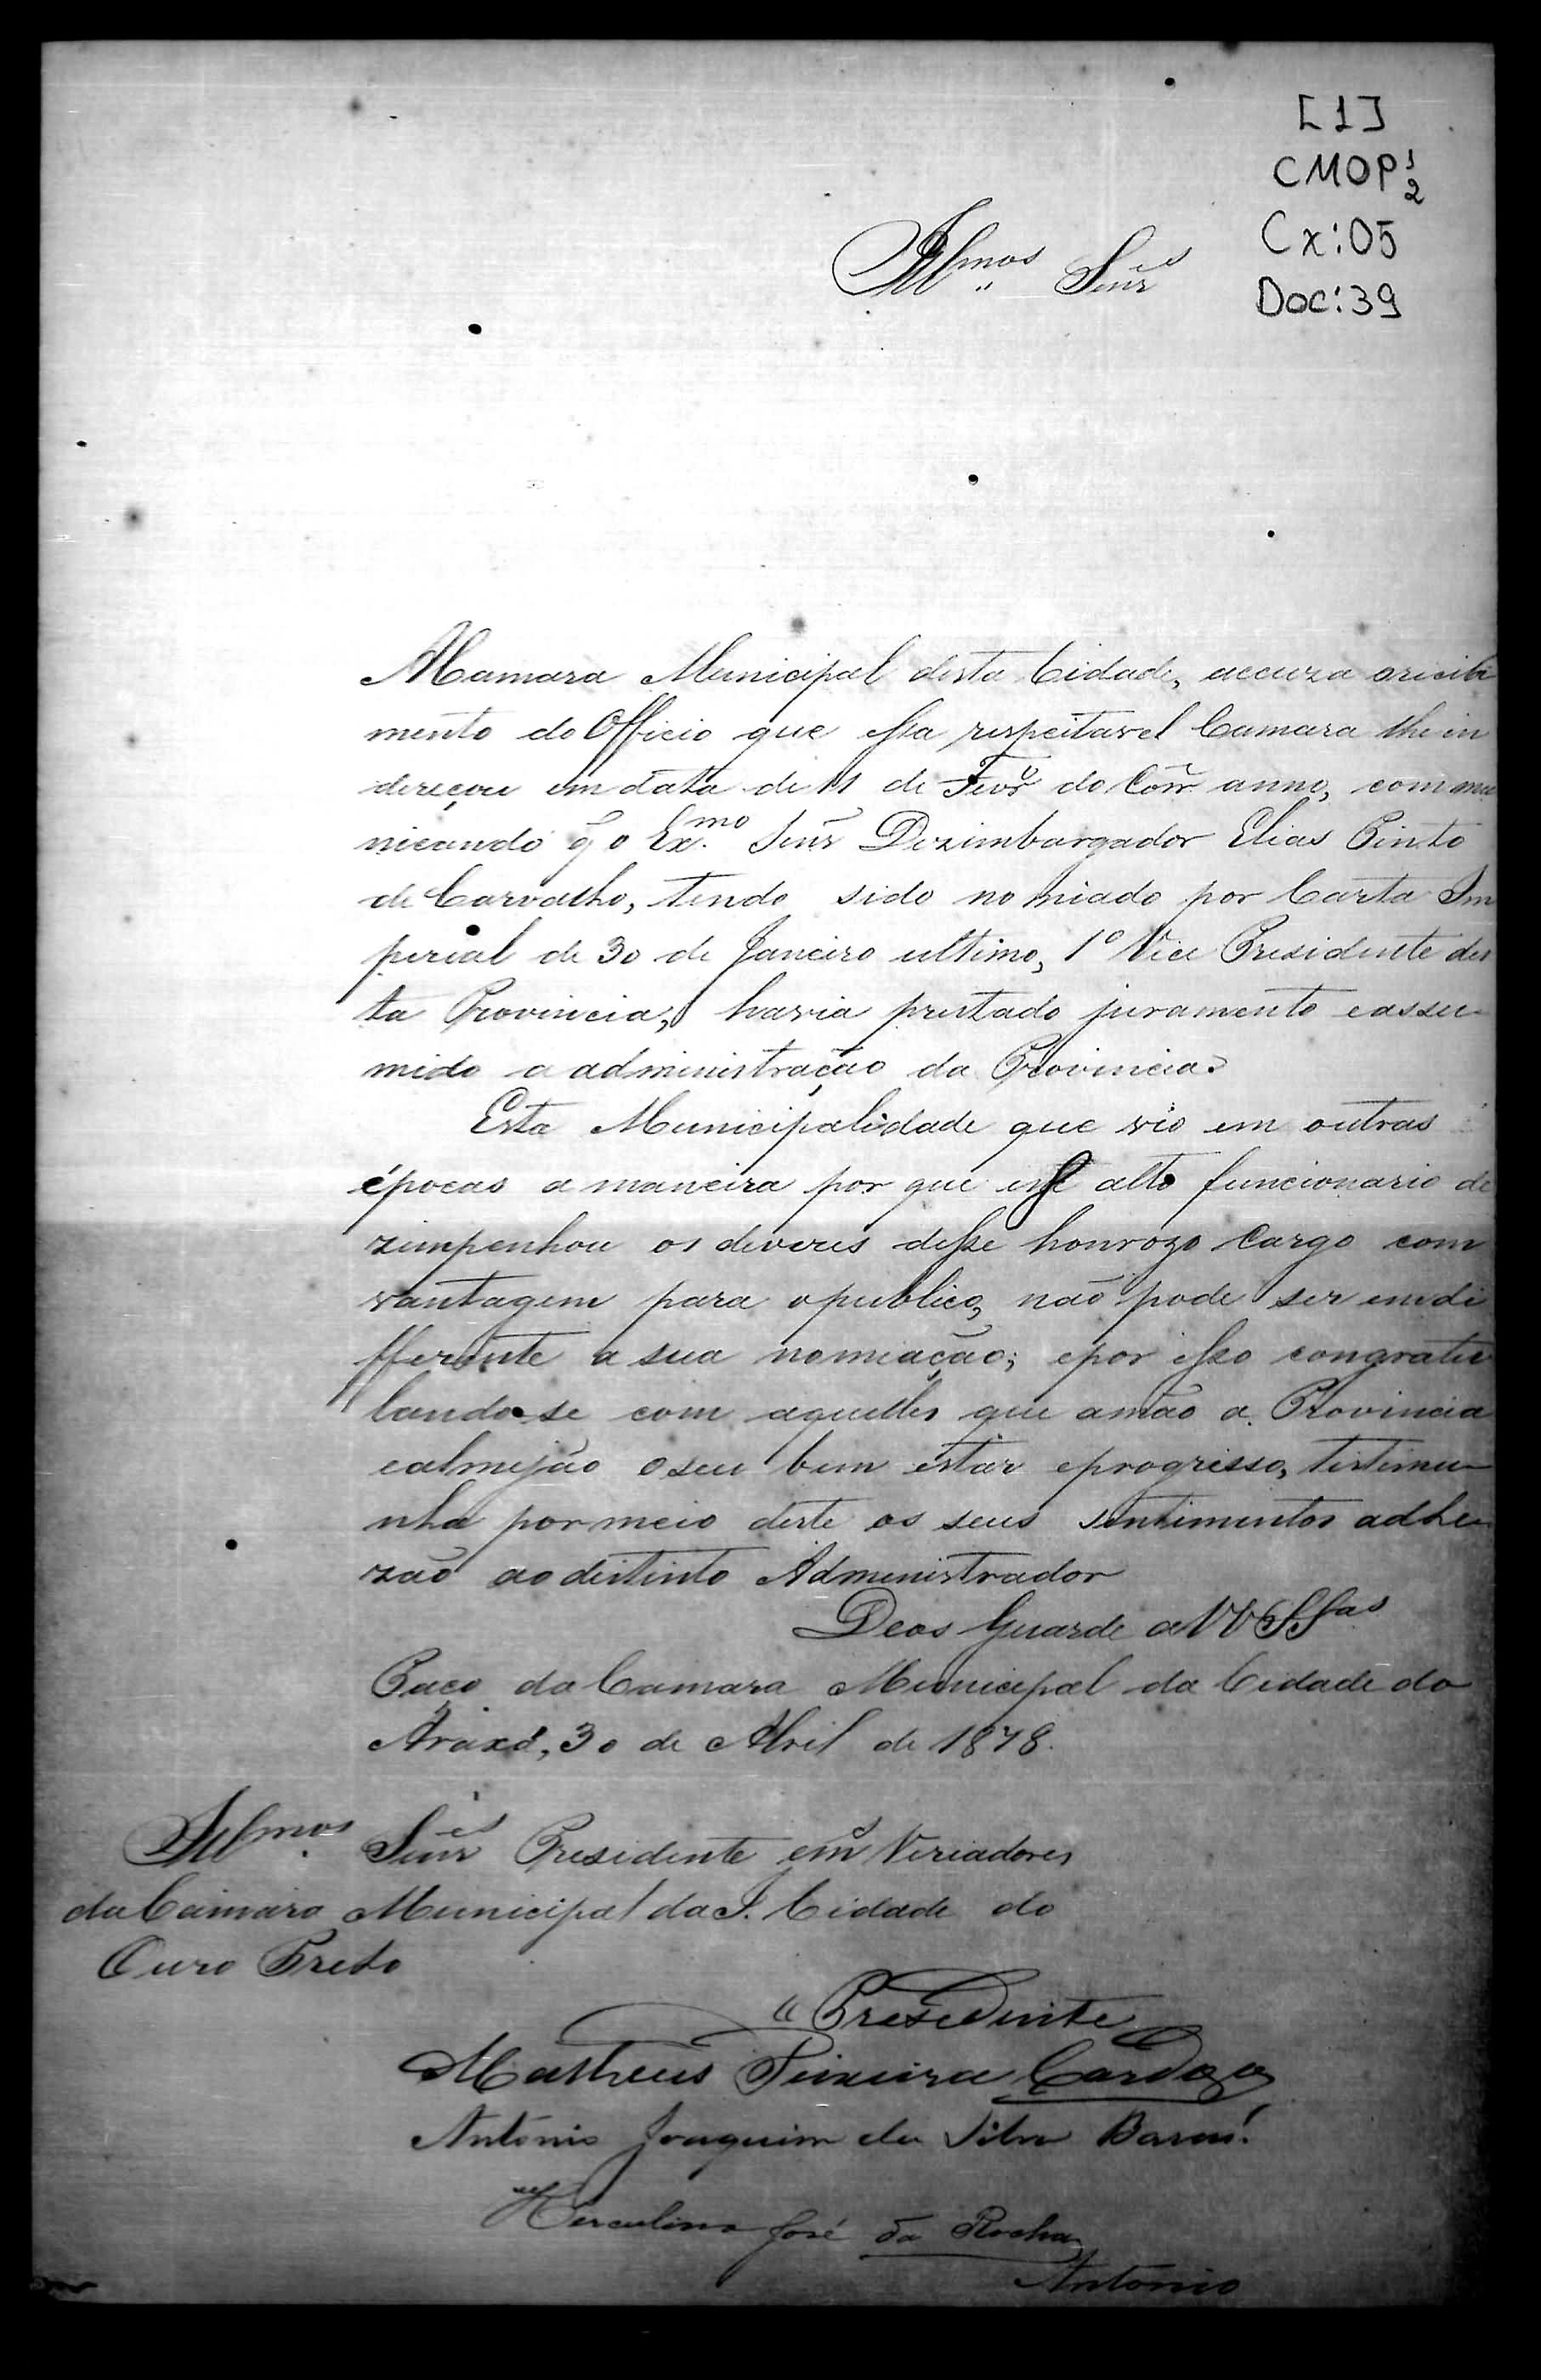 [1]
CMOP 1/2
Cx:05
Doc:39
Illmos Senrs
A Camara Municipal desta Cidade, accuza oricibi
mento do Officio que essa respeitavel Camara lhe in
dereçou em data de 11 de Fevrº do Corr anno, commu
nicando q̃ o Exmo. Senr Dezimbargador Elias Pinto
de Carvalho, tendo sido nomiado por Carta Im
perial de 30 de Janeiro ultimo, 1º Vice Presidente des
ta Provincia, havia prestado juramento eassu-
mido a administração da Provincia.
Esta Municipalidade que vio em outras
épocas a maneira por que esse alto funcionario de
zimpenhou os deveres desse honrozo Cargo com
vantagem para opublico, não pode ser endi
fferente a sua nomiação; epor isso congratu
lando-se com aquelles que amão a Provincia
ealmejão oseu bem estar eprogresso, testemu-
nha pormeio deste os seus sentimentos adhe-
zão ao destinto Administrador
Deos Guarde a VVSSas
Paço da Camara Municipal da Cidade do
Araxá, 30 de Abril de 1878.
Illmos. Senrs Presidente em Veriadores
da Camara Municipal da I. Cidade do
Ouro Preto
"Presidente
Matheus Teixeira Cardozo
Antonio Joaquim da Silva
Herculino José da Rocha
Antonio